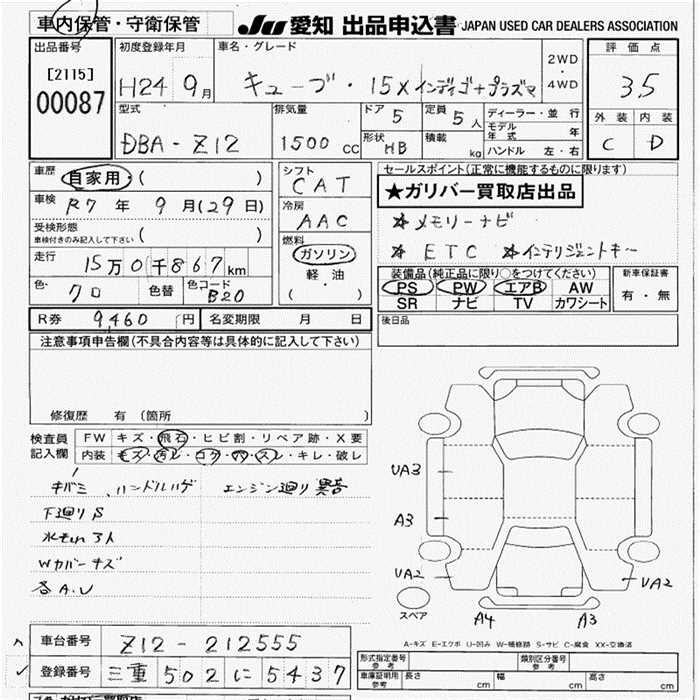 車内保管・守衛保管
JU 愛知 出品申込書 JAPAN USED CAR DEALERS ASSOCIATION
出品番号
[2115]
00087
初度登録年月
H24 9月
車名・グレード
キューブ・15X インディゴ+プラズマ
2WD
・
4WD
評価点
3.5
外装 内装
C D
型式
DBA-Z12
排気量
1500 cc
ドア 5
形状 HB
定員 5人
積載 kg
ディーラー・並行
モデル年式 年
ハンドル 左・右
車歴
自家用・( )
車検 R7年 9月(29日)
受検形態
車検付きのみ記入して下さい ( )
走行 15万0千867km
色 クロ 色替 色コード B20
シフト
CAT
冷房
AAC
燃料
ガソリン
・
軽・油
・
( )
セールスポイント(正常に機能するものに限ります)
★ガリバー買取店出品
☆メモリーナビ
☆ETC ☆インテリジェントキー
装備品(純正品に限り○をつけてください)
PS PW エアB AW
SR ナビ TV カワシート
新車保証書
有・無
R券 9,460円 名変期限 月 日
後日品
注意事項申告欄(不具合内容等は具体的に記入して下さい)
修復歴 有 (箇所 )
検査員記入欄
FW キズ・飛石・ヒビ割・リペア跡・X要
内装 キズ・汚レ・コゲ・穴・スレ・キレ・破レ
キバミ ハンドルハゲ エンジン廻り異音
下廻りS
水もれ3人
Wカバーキズ
各A.U
UA3
A3
UA2
UA2
スペア
A4 A3
A-キズ E-エクボ U-凹み W-補修跡 S-サビ C-腐食 XX-交換済
車台番号 Z12-212555
登録番号 三重 502 に 5437
形式指定番号
参考
類別区分番号
参考
車庫証明用
参考
長さ cm 幅 cm 高さ cm